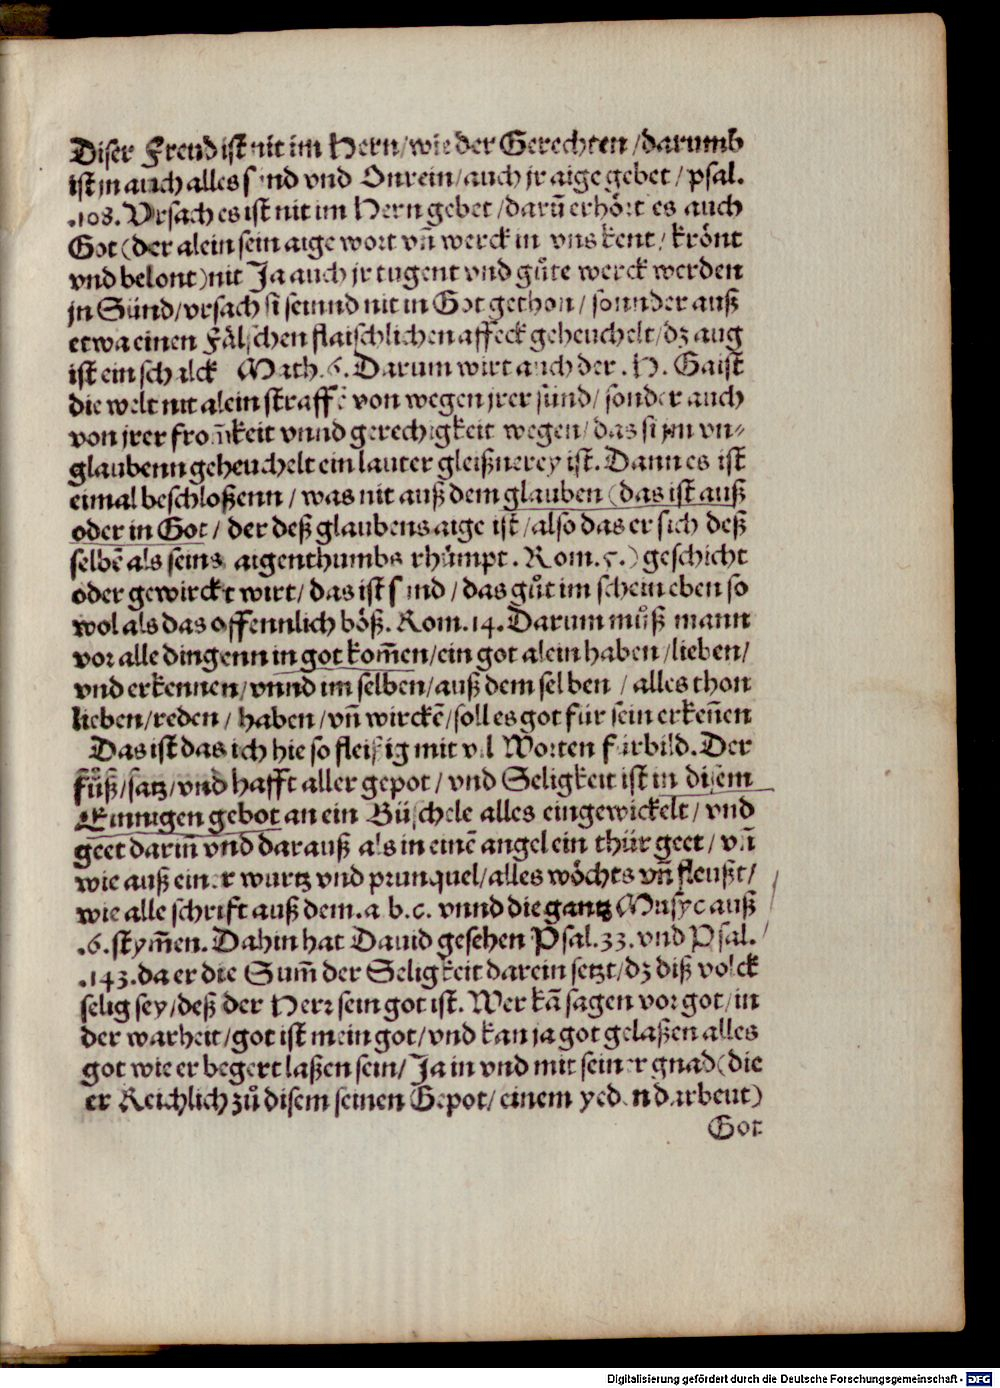 Diser Freud ist nit im Hern/wie der Gerechten/darumb
ist jn auch alles sünd vnd Vnrein/auch jr aige gebet/psal.
.108. Vrsach es ist nit im Hern gebet/darū erhört es auch
Got (der alein sein aige wort vñ werck in vns kent/krönt
vnd belont) nit Ja auch jr tugent vnd gůte werck werden
jn Sünd/vrsach si seinnd nit in Got gethon/sonnder auß
etwa einen Fälschen flaischlichen affeck geheuchelt/dz aug
ist ein schalck Math.6. Darum wirt auch der .H. Gaist
die welt nit alein straffē von wegen jrer sünd/sonder auch
von jrer from̄keit vnnd gerechigkeit wegen/das si jm vn⸗
glaubenn geheuchelt ein lauter gleißnerey ist. Dann es ist
eimal beschloßenn/was nit auß dem glauben (das ist auß
oder in Got/der deß glaubens aige ist/also das er sich deß
selbē als seins aigenthumbs rhümpt. Rom.5.) geschicht
oder gewirckt wirt/das ist sünd/das gůt im schein eben so
wol als das offennlich böß. Rom.14. Darum můß mann
vor alle dingenn in got kom̄en/ein got alein haben/lieben/
vnd erkennen/vnnd im selben/auß dem selben/alles thon
lieben/reden/haben/vñ wirckē/soll es got für sein erkeñen
Das ist das ich hie so fleißig mit vil Worten fürbild. Der
fůß/satz/vnd hafft aller gepot/vnd Seligkeit ist in disem
Einnigen gebot an ein Büschele alles eingewickelt/vnd
geet dariñ vnd darauß als in einē angel ein thür geet/vñ
wie auß einer wurtz vnd prunquel/alles wöchts vñ fleußt/
wie alle schrift auß dem .a b.c. vnnd die gantz Musyc auß
.6. stym̄en. Dahin hat Dauid gesehen Psal.33. vnd Psal.
.143. da er die Sum̄ der Seligkeit darein setzt/dz diß volck
selig sey/deß der Herr sein got ist. Wer kā sagen vor got/in
der warheit/got ist mein got/vnd kan ja got gelaßen alles
got wie er begert laßen sein/Ja in vnd mit seiner gnad (die
er Reichlich zů disem seinen Gepot/einem yeden darbeut)
Got
Digitalisierung gefördert durch die Deutsche Forschungsgemeinschaft - DFG